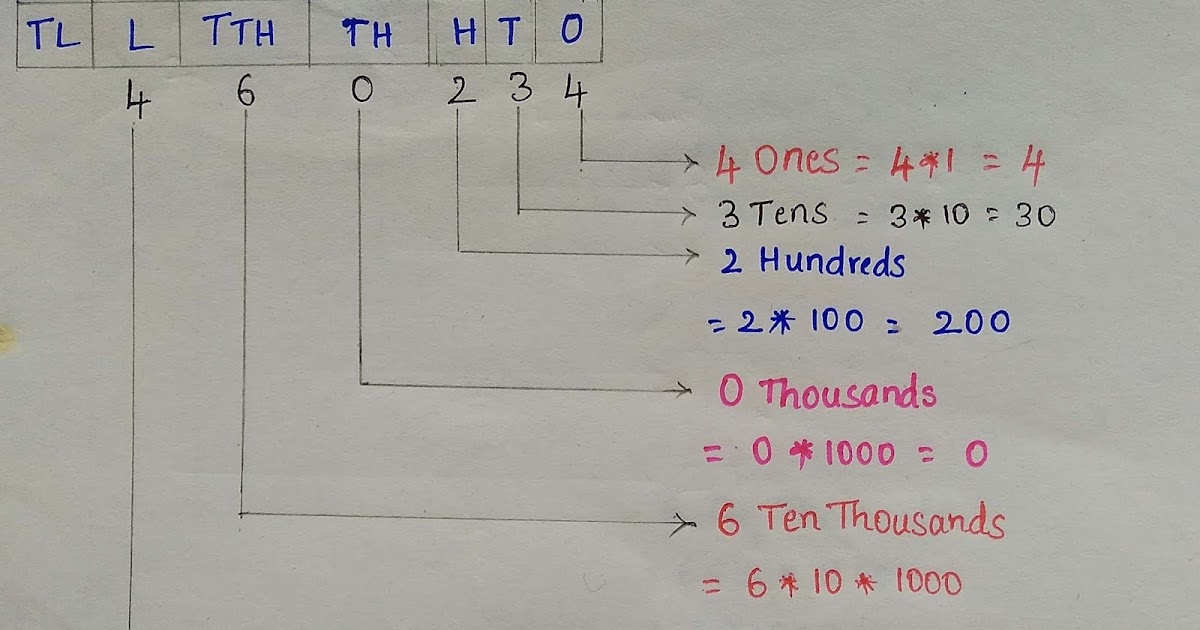 TL L TTH TH H T O
4 6 0 2 3 4
4 Ones = 4*1 = 4
3 Tens = 3*10 = 30
2 Hundreds
= 2* 100 = 200
0 Thousands
= 0 *1000 = 0
6 Ten Thousands
= 6 * 10 * 1000